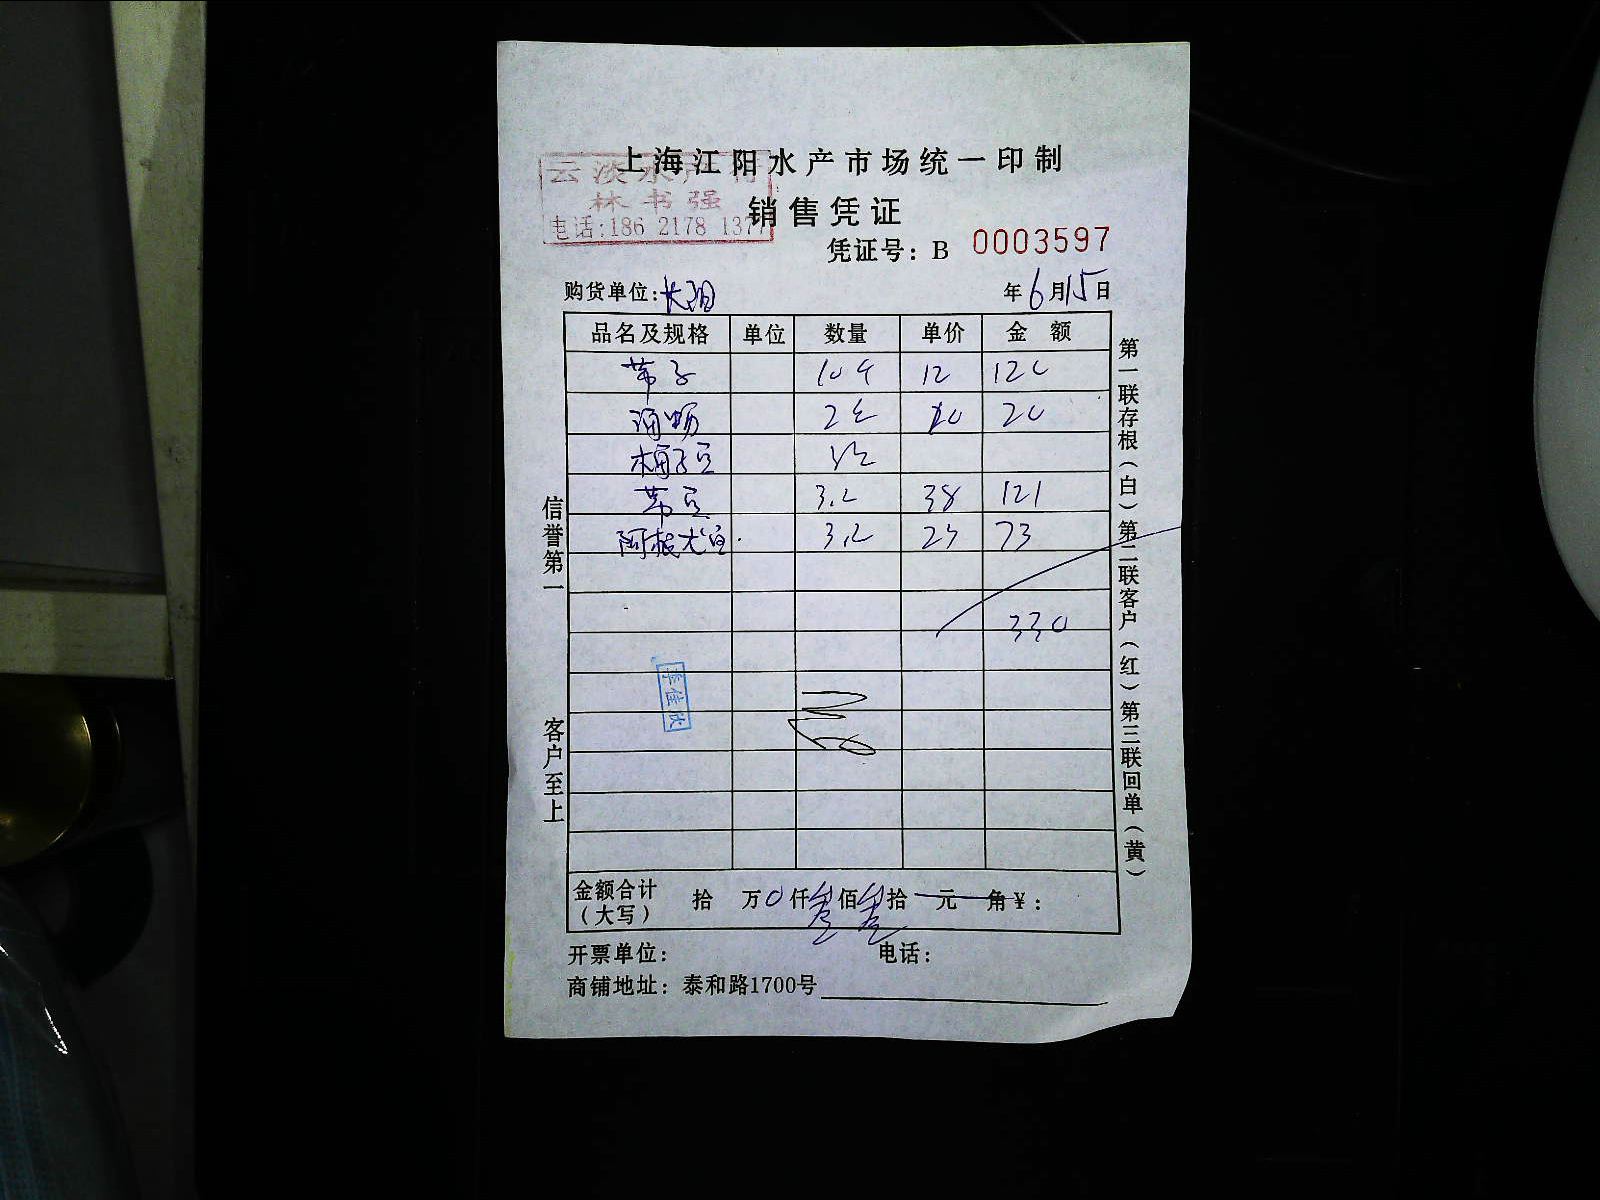 上海江阳水产市场统一印制
云淡水产行
林书强
电话:186 2178 1377
销售凭证
凭证号: B 0003597
购货单位: 年6月15日
品名及规格 单位 数量 单价 金额
带子 10个 12 120
20 20
带 3.2 38 121
阿根 3.2 23 73
330
李佳欣
金额合计(大写) 拾 万0仟叁佰叁拾 元 角¥:
开票单位: 电话:
商铺地址: 泰和路1700号
信誉第一
客户至上
第一联存根(白)第二联客户(红)第三联回单(黄)